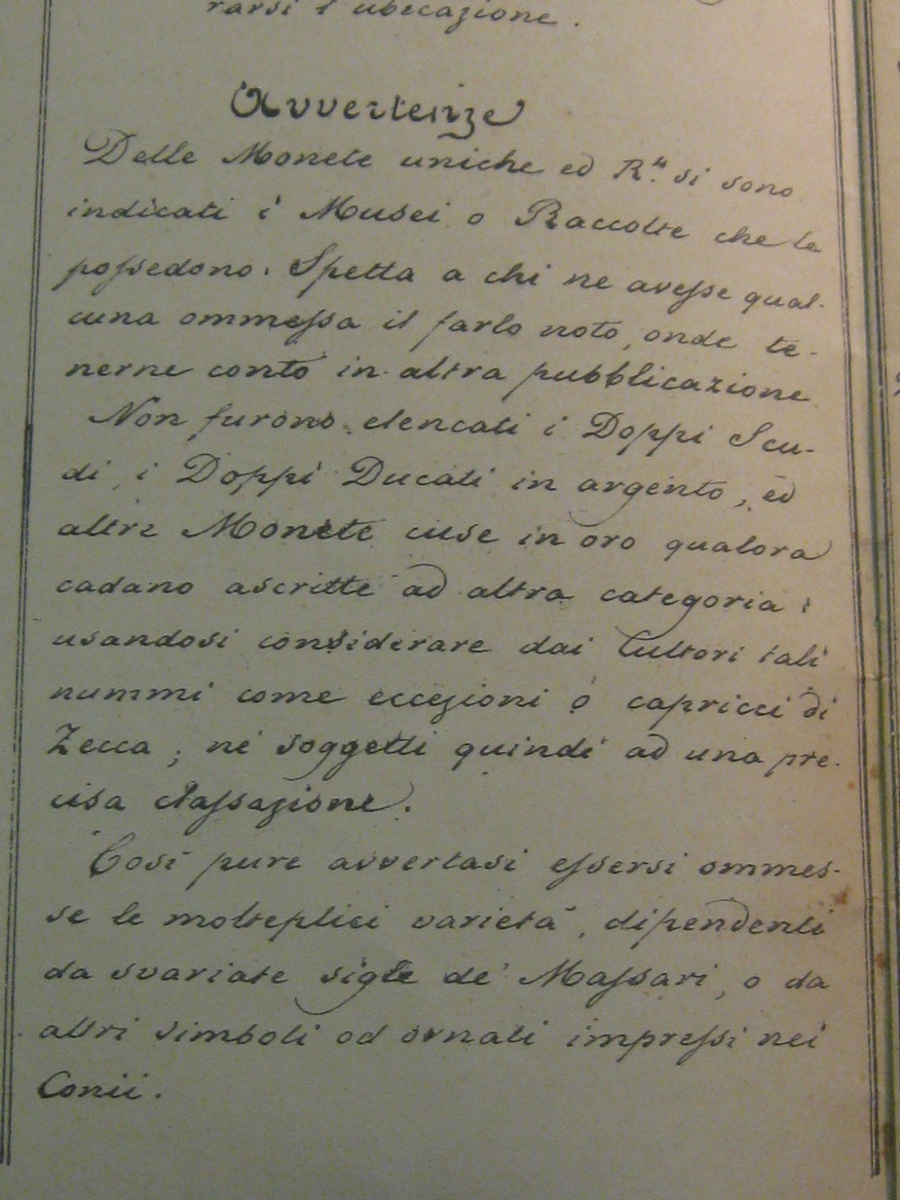 rarsi l'ubicazione.
Avvertenze
Delle Monete uniche ed R.4 si sono
indicati i Musei o Raccolte che le
possedono. Spetta a chi ne avesse qual-
cuna ommessa il farlo noto, onde te-
nerne conto in altra pubblicazione
Non furono elencati i Doppi Scu-
di, i Doppi Ducati in argento, ed
altre Monete cuse in oro qualora
cadano ascritte ad altra categoria;
usandosi considerare dai Cultori tali
nummi come eccezioni o capricci di
Zecca; nè soggetti quindi ad una pre-
cisa classazione.
Così pure avvertasi essersi ommes-
se le molteplici varietà, dipendenti
da svariate sigle de' Massari, o da
altri simboli od ornati impressi nei
Conii.